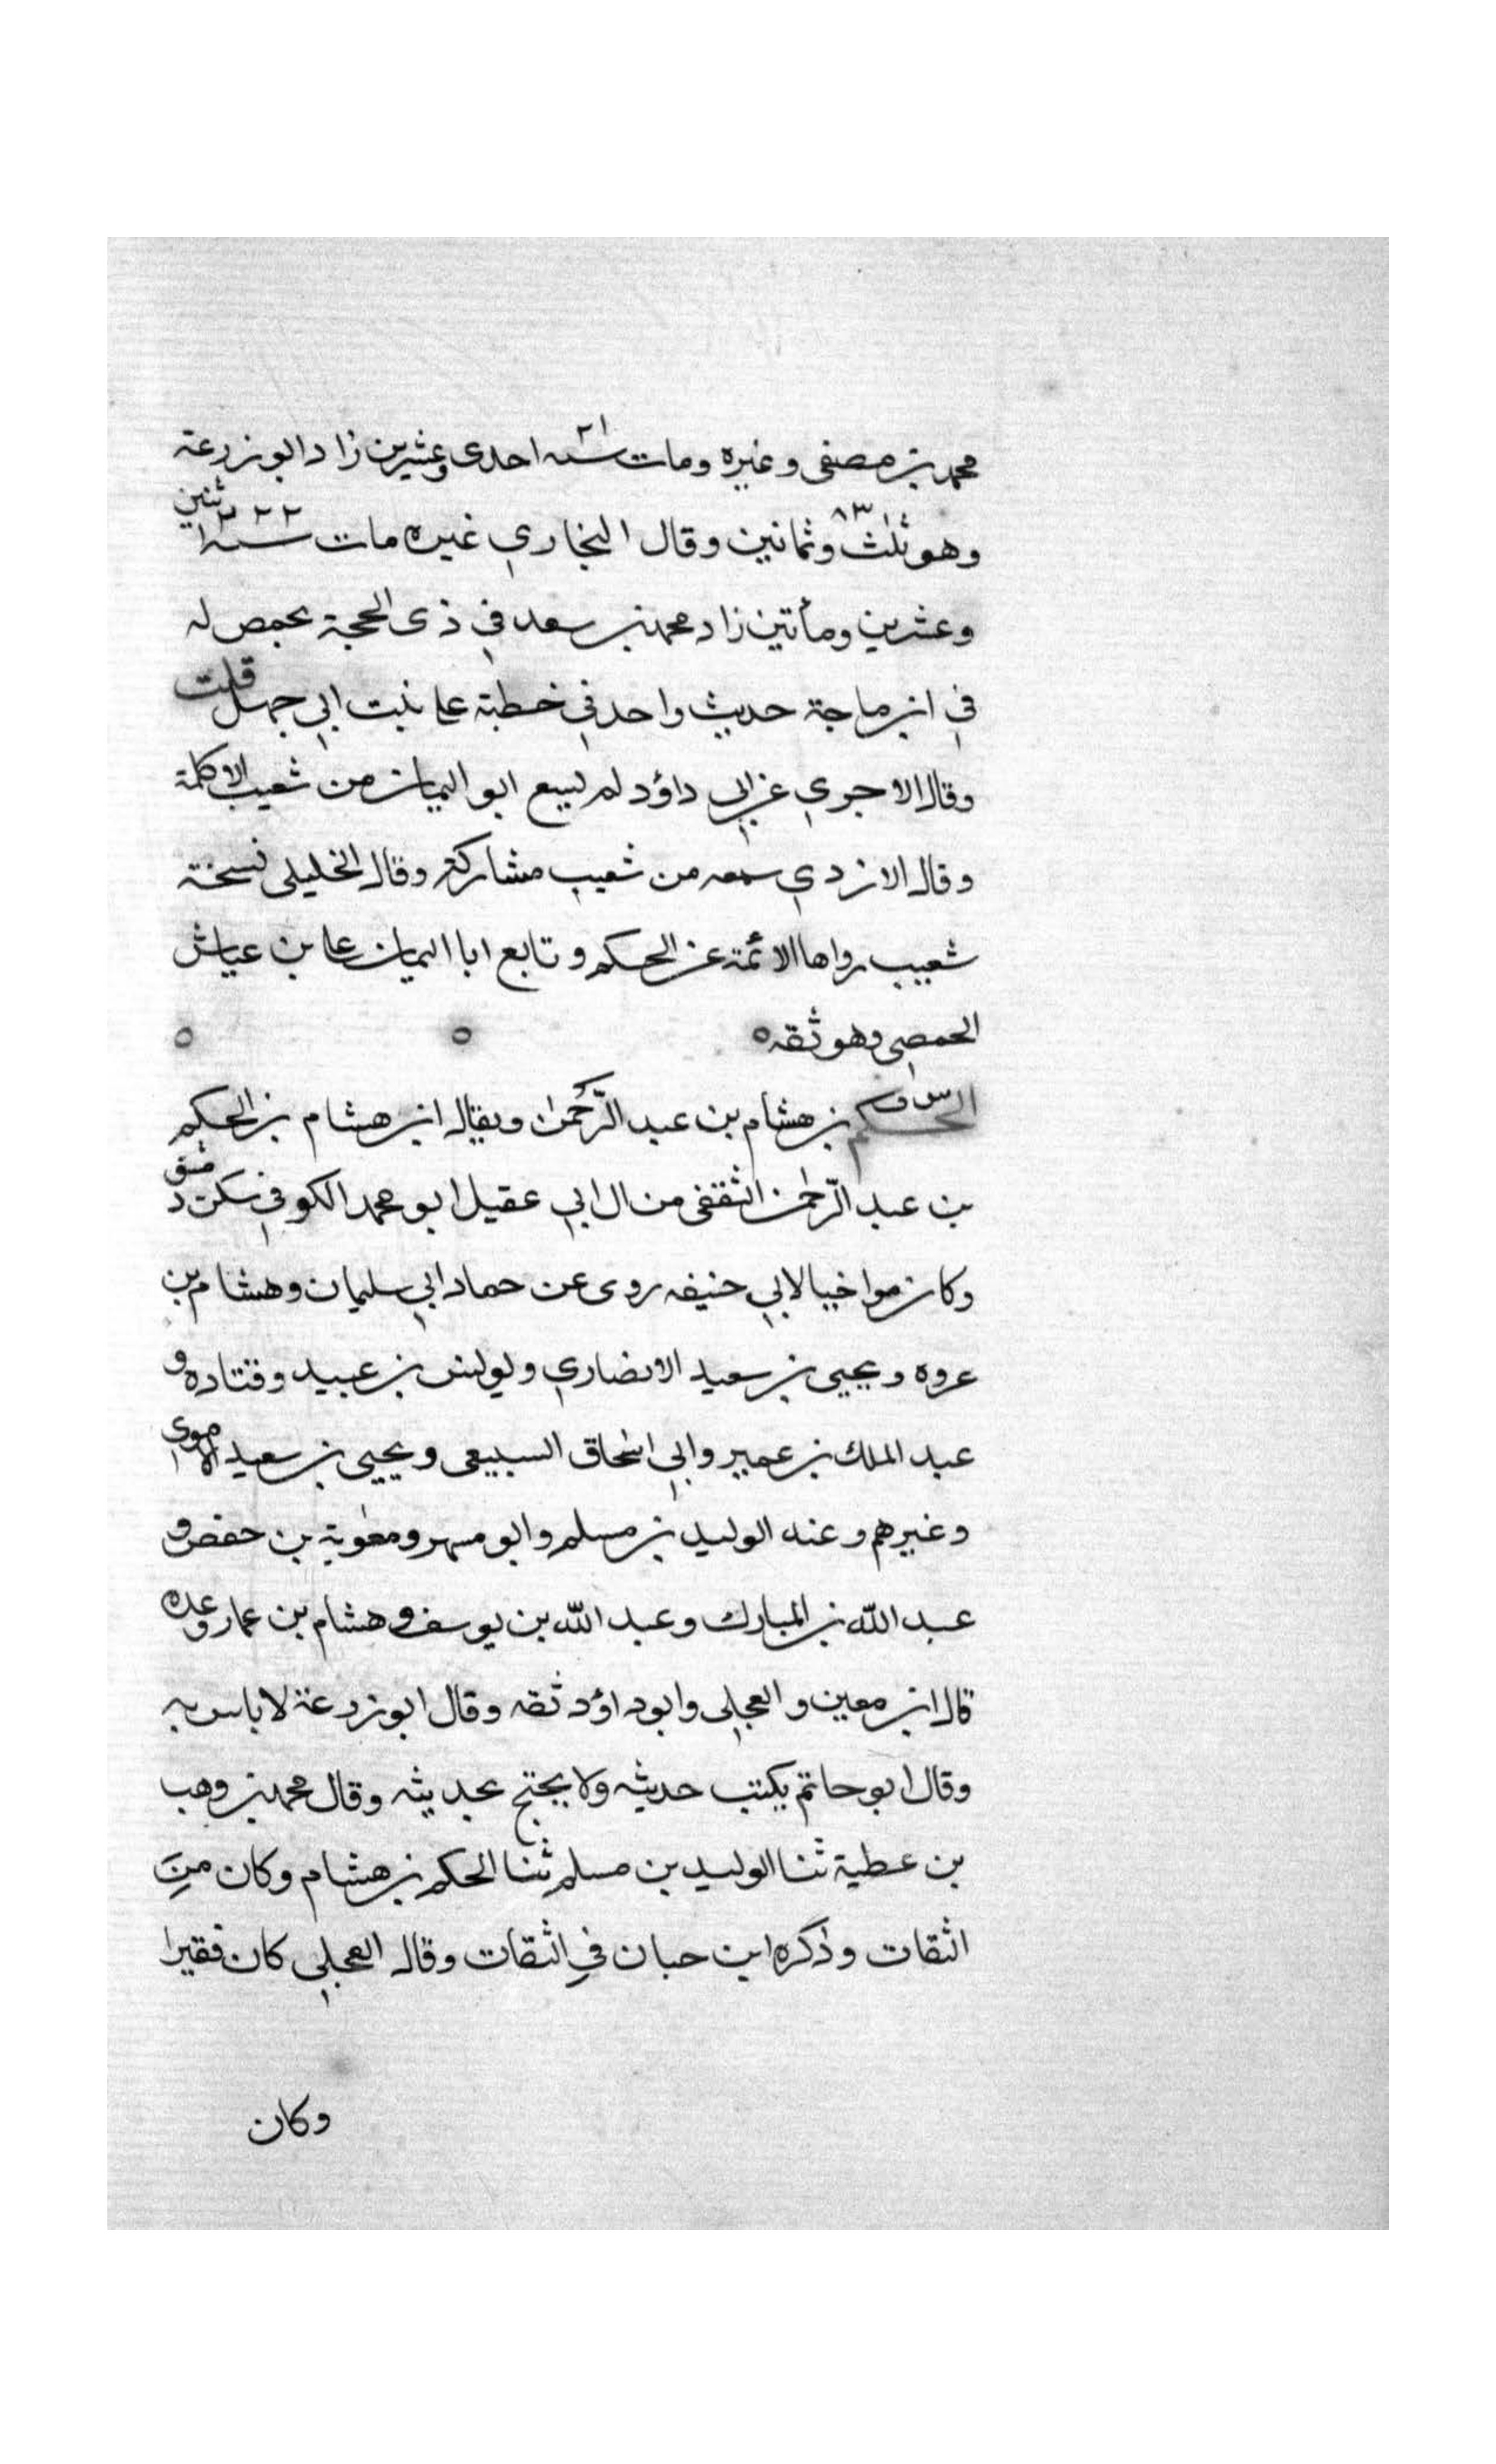 محمد بن مصفى وغيره ومات سنه ٢١ احدى وعشرين زاد ابو زرعة
وهو ثلث ٨٣ وثمانين وقال البخاري غيره مات سنه ٢٢٢ اثنين
وعشرين ومأتين زاد محمد بن سعد في ذى الحجة بحمص له
في ابن ماجة حديث واحد في خطبة على بنت ابي جهل قلت
وقال الاجري عن ابي داؤد لم يسمع ابو اليمان من شعيب الا كلمة
وقال الازدي سمعه من شعيب مشاركة وقال الخليلى نسخة
شعيب رواها الائمة عن الحكم وتابع ابا اليمان على بن عياش
الحمصي وهو ثقه ٥ ٥ ٥
الحكم س ق بن هشام بن عبد الرّحمن ويقال ابن هشام بن الحكم
بن عبد الرّحمن الثقفى من ال ابي عقيل ابو محمد الكوفي سكن دمشق
وكان مواخيا لابي حنيفه روى عن حماد ابي سليمان وهشام بن
عروه ويحيى بن سعيد الانصاري ويونس بن عبيد وقتاده و
عبد الملك بن عمير وابي اسحاق السبيعى ويحيى بن سعيد الاموى
وغيرهم وعنه الوليد بن مسلم وابو مسهر ومعٰوية بن حفص و
عبد الله بن المبارك وعبد الله بن يوسف وهشام بن عمار وعده
قال ابن معين والعجلي وابو داؤد ثقه وقال ابو زرعة لا باس به
وقال ابو حاتم يكتب حديثه ولا يحتج بحديثه وقال محمد بن وهب
بن عطية ثنا الوليد بن مسلم ثنا الحكم بن هشام وكان من
الثقات وذكره ابن حبان في الثقات وقال العجلي كان فقيرا
وكان